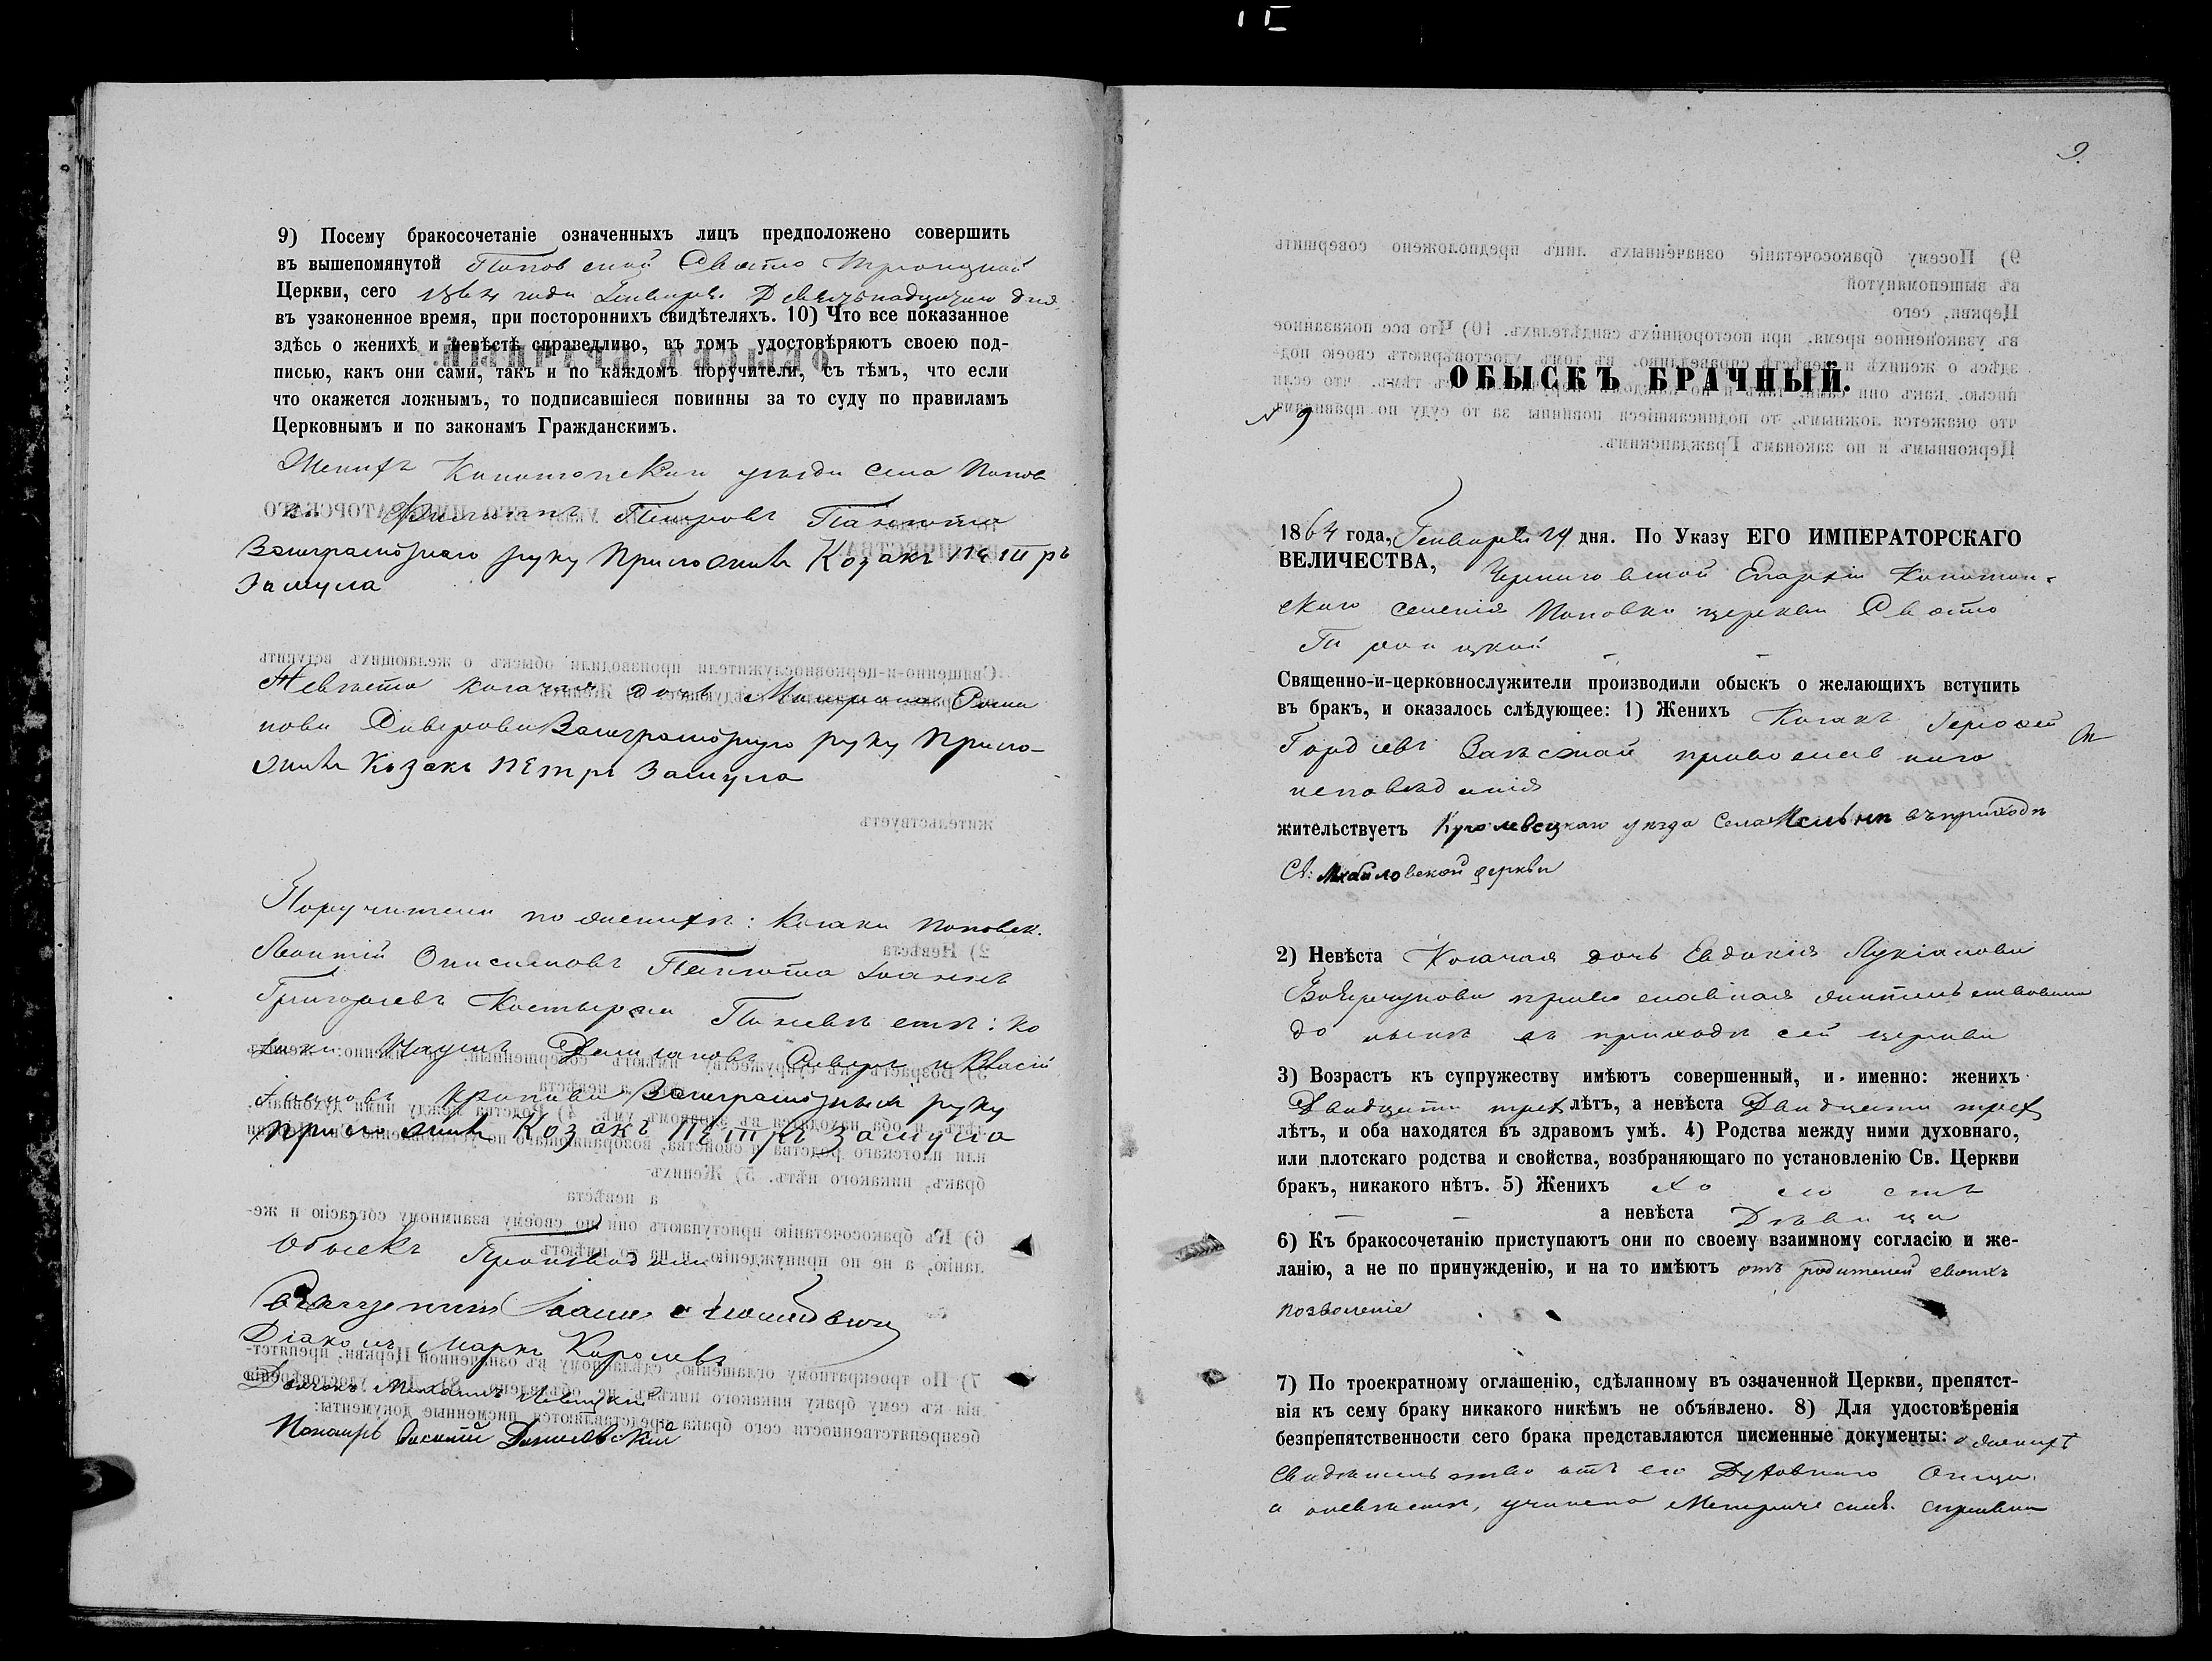 9) Посему бракосочетаніе означенныхъ лицъ предположено совершить
въ вышепомянутой Поповской Свято Троицкой
Церкви, сего 1864 года Генваря Девятьнадцатаго дня
въ узаконенное время, при постороннихъ свидѣтеляхъ. 10) Что все показанное
здѣсь о женихѣ и невѣстѣ справедливо, въ томъ удостовѣряютъ своею под-
писью, какъ они сами, такъ и по каждомъ поручители, съ тѣмъ, что если
что окажется ложнымъ, то подписавшіеся повинны за то суду по правиламъ
Церковнымъ и по законамъ Гражданскимъ.
Женихъ Конотопскаго уѣзда села Попов
ки Филиппъ Петровъ
руку приложилъ Козакъ Петръ
Замула
Невѣста козачая дочь Рома
нова
руку прило-
жилъ Козакъ Петръ Замула
Поручители по женихѣ: козаки поповск.
Леонтій Онисимовъ Іоаннъ
Григорьевъ По невѣстѣ: ко
заки Наумъ и
руку
приложилъ Козакъ Петръ Замула
Обыскъ Производили
Священникъ Іоаннъ
Діаконъ Маркъ Королевъ
Дьячокъ Михаилъ Левицкій
Пономарь
9.
ОБЫСКЪ БРАЧНЫЙ.
№ 9
1864 года, Генваря 29 дня. По Указу ЕГО ИМПЕРАТОРСКАГО
ВЕЛИЧЕСТВА, Черниговской Епархіи Конотоп-
скаго селенія Поповки церкви Свято
Троицкой
Священно-и-церковнослужители производили обыскъ о желающихъ вступить
въ бракъ, и оказалось слѣдующее: 1) Женихъ Козакъ
Гордѣевъ православнаго
исповѣданія
жительствуетъ Кролевецкаго уѣзда Села въ приходѣ
Св: Михайловской церкви
2) Невѣста Козачая дочь Евдокія Лукіанова
православная жительствовала
до нынѣ въ приходѣ сей церкви
3) Возрастъ къ супружеству имѣютъ совершенный, и. именно: женихъ
Двадцати трехъ лѣтъ, а невѣста Двадцати трехъ
лѣтъ, и оба находятся въ здравомъ умѣ. 4) Родства между ними духовнаго,
или плотскаго родства и свойства, возбраняющаго по установленію Св. Церкви
бракъ, никакого нѣтъ. 5) Женихъ холостъ
а невѣста Дѣвица
6) Къ бракосочетанію приступаютъ они по своему взаимному согласію и же-
ланію, а не по принужденію, и на то имѣютъ отъ родителей своихъ
позволеніе
7) По троекратному оглашенію, сдѣланному въ означенной Церкви, препятст-
вія къ сему браку никакого никѣмъ не объявлено. 8) Для удостовѣренія
безпрепятственности сего брака представляются писменные документы: о женихѣ
Свидѣтельство отъ его Духовнаго Отца.
а о невѣстѣ, учинена Метрическ. справка